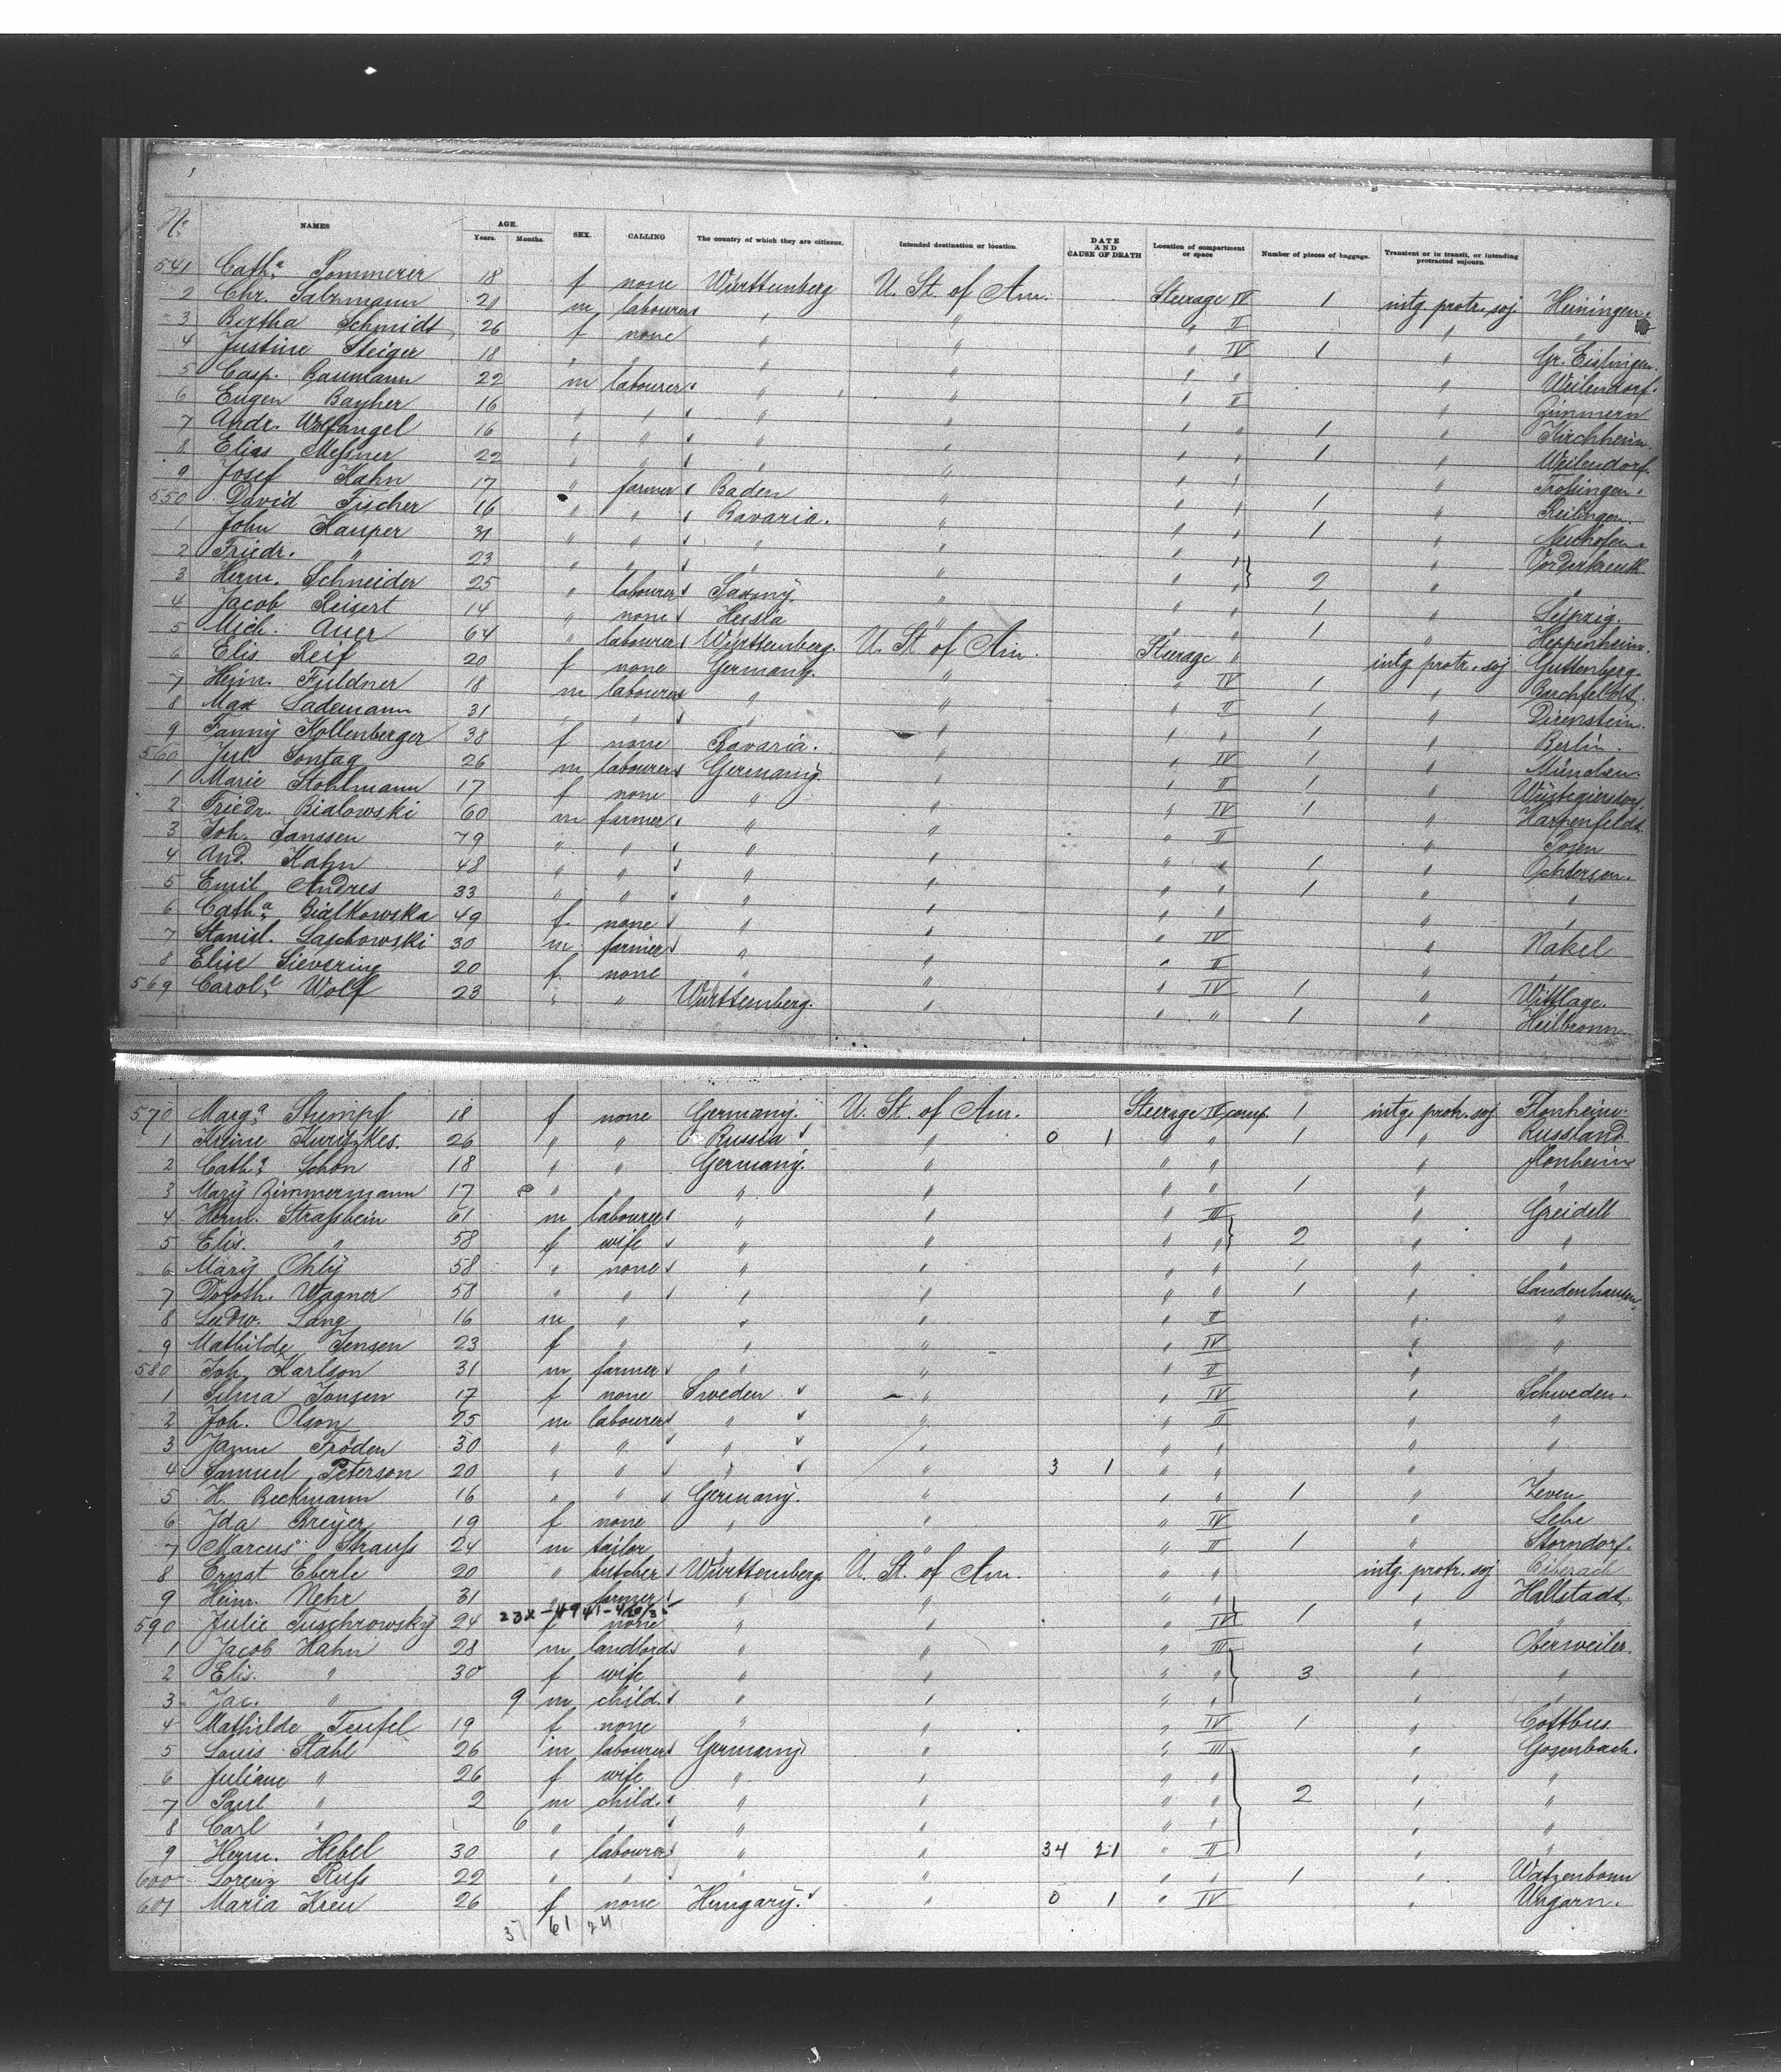 No. NAMES AGE. Years. Months. SEX. CALLING The country of which they are citizens. Intended destination or location. DATE AND CAUSE OF DEATH Location of compartment or space Number of pieces of baggage. Transient or in transit, or intending protracted sojourn.
541 Cath.a Sommerer 18 f none Württemberg U. St. of Am. Steerage IV 1 intg. protr. soj. Heiningen.
2 Chr. Salzmann 21 m labourer " " " II " "
3 Bertha Schmidt 26 f none " " " IV 1 " Gr. Eislingen.
4 Justine Steiger 18 " " " " " " " Weilendorf.
5 Casp. Baumann 22 m labourer " " " II " Zimmern
6 Eugen Bayher 16 " " " " " " 1 " Kirchheim.
7 Andr. Wolfangel 16 " " " " " " 1 " Weilendorf.
8 Elias Meßner 22 " " " " " " " Troßingen.
9 Josef Kahn 17 " farmer Baden " " " 1 " Reilingen.
550 David Fischer 16 " " Bavaria. " " " 1 " Neuhofen.
1 John Kauper 31 " " " " " "
2 Friedr. " 23 " " " " " " 2 " "
3 Herm. Schneider 25 " labourer Saxony. " " " 1 " Leipzig.
4 Jacob Reisert 14 " none Hessia " " " 1 " Heppenheim.
5 Mich. Auer 64 " labourer Württemberg. U. St. of Am. Steerage " intg. protr. soj. Guttenberg.
6 Elis. Reif 20 f none Germany. " " IV 1 "
7 Heinr. Fuldner 18 m labourer " " " II 1 " Dirnstein.
8 Max Lademann 31 " " " " " " 1 " Berlin.
9 Fanny Kollenberger 38 f none Bavaria. " " IV 1 " München.
560 Jul. Sontag 26 m labourer Germany " " II 1 "
1 Marie Stohlmann 17 f none " " " IV 1 " Harpenfeldt.
2 Friedr. Bialowski 60 m farmer " " " II " Posen
3 Joh. Janssen 79 " " " " " " 1 " Ochtersum.
4 And. Kahn 48 " " " " " " 1 " "
5 Emil Andres 33 " " " " " " " "
6 Cath.a Bialkowska 49 f none " " " IV " Nakel
7 Stanisl. Laschowski 30 m farmer " " " II " "
8 Elise Sievering 20 f none " " " IV 1 " Wittlage.
569 Carol.e Wolf 23 " " Württemberg. " " " 1 " Heilbronn.
570 Marg.a Stumpf 18 f none Germany. U. St. of Am. Steerage IV comp. 1 intg. protr. soj Flonheim.
1 Kreine Kuritzkes. 26 " " Russia " 0 1 " " 1 " Russland.
2 Cath.a Schön 18 " " Germany. " " " " Flonheim
3 Mary Zimmermann 17 " " " " " " 1 " "
4 Herm. Straßbein 61 m labourer " " " III " Greidell
5 Elis. " 58 f wife " " " " 2 " "
6 Mary Ohly 58 " none " " " " 1 " "
7 Doroth. Wagner 58 " " " " " " 1 " Landenhausen.
8 Ludw. Lang 16 m " " " " II " "
9 Mathilde Jensen 23 f " " " " IV " "
580 Joh. Karlson 31 m farmer " " " II " "
1 Silma Jonsen 17 f none Sweden " " IV " Schweden.
2 Joh. Olson 25 m labourer " " " II " "
3 Janne Fröden 30 " " " " " " " "
4 Samuel Peterson 20 " " " " 3 1 " " " "
5 H. Beckmann 16 " " Germany. " " " 1 " Zeven
6 Ida Breyer 19 f none " " " IV " Lehe
7 Marcus Strauß 24 m tailor " " " II 1 " Storndorf.
8 Ernst Eberle 20 " butcher Württemberg U. St. of Am. " " intg. protr. soj Biberach
9 Heinr. Nehr 31 " farmer " " " " " Hallstadt.
590 Julie Tuschrowsky 24 f none " " " IV 1 " "
1 Jacob Hahn 28 m landlord " " " III " Oberweiler.
2 Elis. " 30 f wife " " " " 3 " "
3 Jac. " 9 m child. " " " " " "
4 Mathilde Teufel 19 f none " " " IV 1 " Cottbus.
5 Louis Stahl 26 m labourer Germany " " III " Gosenbach.
6 Juliane " 26 f wife " " " " " "
7 Paul " 2 m child. " " " " 2 " "
8 Carl " 6 " " " " " " " "
9 Herm. Hebel 30 " labourer " " 34 21 " II " "
600 Lorenz Ruß 22 " " " " " " 1 " Watzenborn
601 Maria Kreu 26 f none Hungary. " 0 1 " IV " Ungarn.
61 24